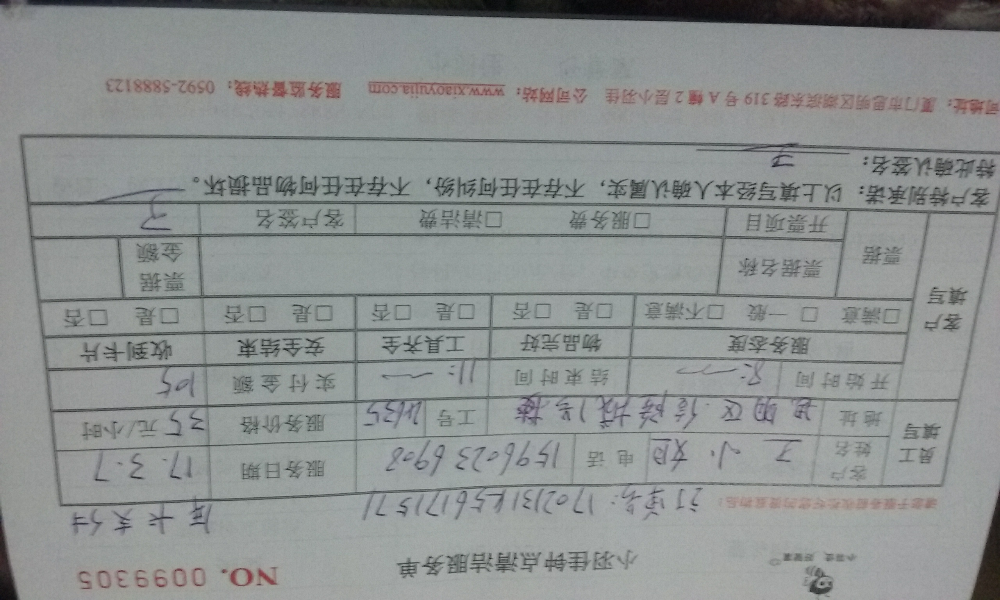 小羽佳 好管家
小羽佳钟点清洁服务单
NO. 0099305
订单号: 1702131656171571
库卡支付
客户姓名 王小姐 电话 15960236908 服务日期 17.3.7
员工填写
地址 思明区 信隆城1号楼 工号 服务价格 35元/小时
开始时间 8: 结束时间 11: 实付金额 105
服务态度 物品完好 工具齐全 安全结束 收到卡片
客户填写
□满意 □一般 □不满意 □是 □否 □是 □否 □是 □否 □是 □否
票据 票据名称 票据金额
开票项目 □服务费 □清洁费 客户签名 王
客户特别承诺：以上填写经本人确认属实，不存在任何纠纷，不存在任何物品损坏。
特此确认签名： 王
司地址：厦门市思明区湖滨东路319号A幢2层小羽佳 公司网站：www.xiaoyujia.com 服务监督热线：0592-5888123